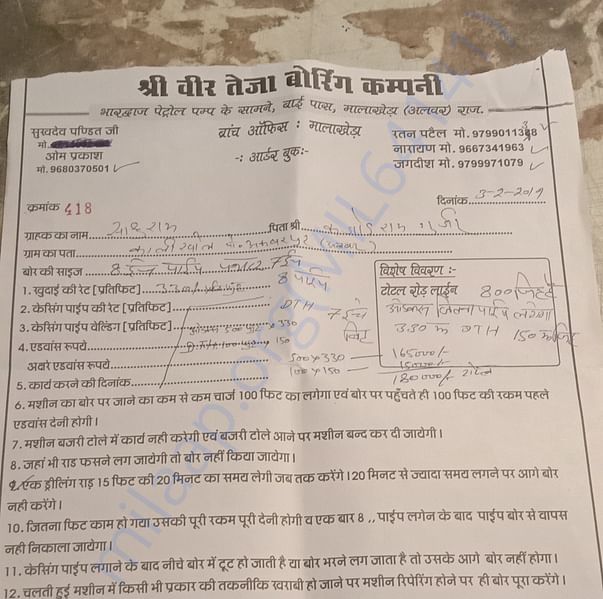 श्री वीर तेजा बोरिंग कम्पनी
भारद्वाज पेट्रोल पम्प के सामने, बाई पास, मालाखेड़ा (अलवर) राज.
सुखदेव पण्डित जी
मो.
ओम प्रकाश
मो. 9680370501
ब्रांच ऑफिस : मालाखेड़ा
-: आर्डर बुक:-
रतन पटेल मो. 97990113
नारायण मो. 9667341963
जगदीश मो. 9799971079
क्रमांक 418
दिनांक 3-2-2019
ग्राहक का नाम पिता श्री राम गुर्जर
ग्राम का पता
बोर की साइज 8 इन्च पाईप 7 इंच
1. खुदाई की रेट [प्रतिफिट] 8 पाईप
2. केसिंग पाईप की रेट [प्रतिफिट] DTH
3. केसिंग पाईप वेल्डिंग [प्रतिफिट] 330
4. एडवांस रूपये 150
अबरे एडवांस रूपये 500 x 330 — 165000/-
5. कार्य करने की दिनांक 100 x 150 — 15000/-
180000/- टोटल
7 इंच
विशेष विवरण :-
टोटल रोड़ लाईन 800
330 DTH 150
6. मशीन का बोर पर जाने का कम से कम चार्ज 100 फिट का लगेगा एवं बोर पर पहुँचते ही 100 फिट की रकम पहले
एडवांस देनी होगी।
7. मशीन बजरी टोले में कार्य नही करेगी एवं बजरी टोले आने पर मशीन बन्द कर दी जायेगी।
8. जहां भी राड फसने लग जायेगी तो बोर नहीं किया जायेगा।
9. एक ड्रीलिंग राड़ 15 फिट की 20 मिनट का समय लेगी जब तक करेंगे। 20 मिनट से ज्यादा समय लगने पर आगे बोर
नही करेंगे।
10. जितना फिट काम हो गया उसकी पूरी रकम पूरी देनी होगी व एक बार 8 ,, पाईप लगेन के बाद पाईप बोर से वापस
नही निकाला जायेगा।
11. केसिंग पाईप लगाने के बाद नीचे बोर में टूट हो जाती है या बोर भरने लग जाता है तो उसके आगे बोर नहीं होगा।
12. चलती हुई मशीन में किसी भी प्रकार की तकनीकि खराबी हो जाने पर मशीन रिपेरिंग होने पर ही बोर पूरा करेंगे।